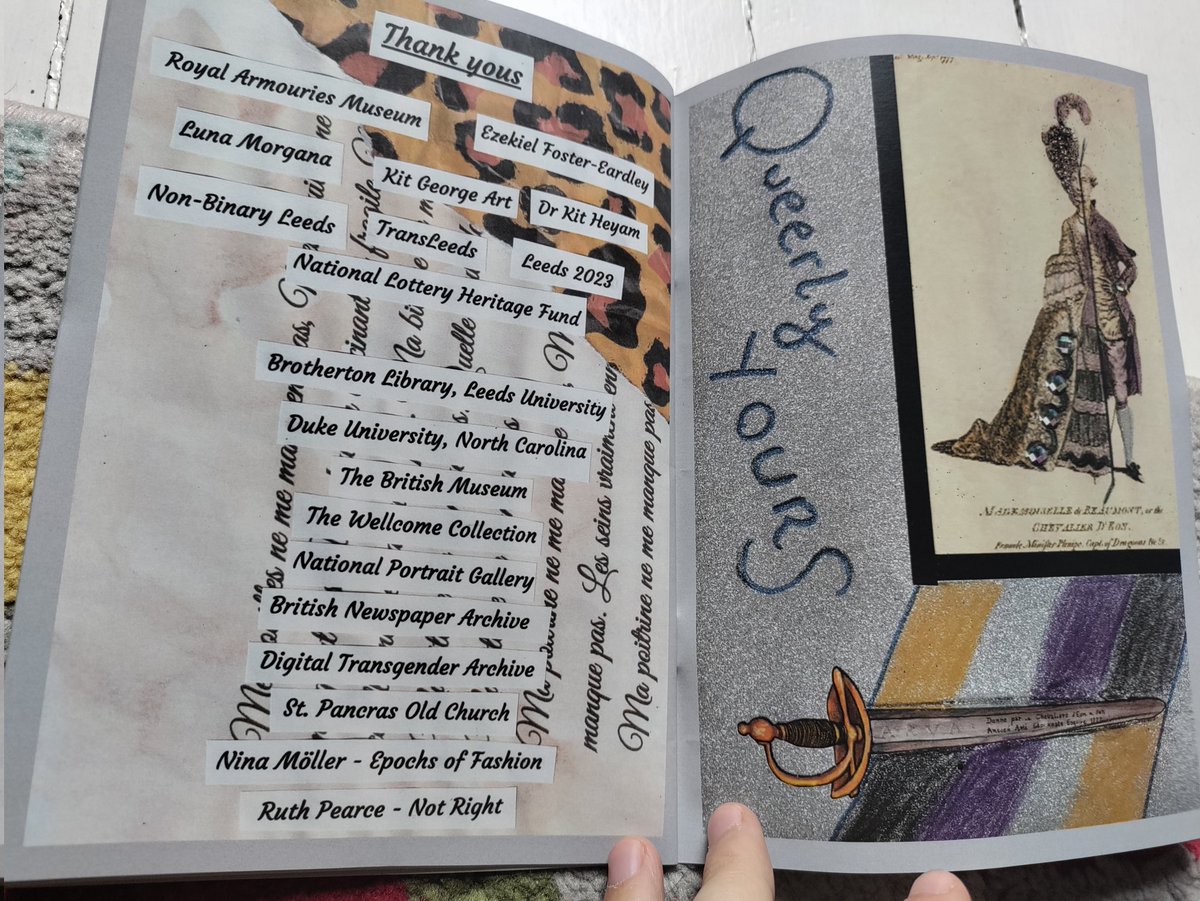 Thank yous
Royal Armouries Museum
Ezekiel Foster-Eardley
Luna Morgana
Kit George Art
Dr Kit Heyam
Non-Binary Leeds
TransLeeds
Leeds 2023
National Lottery Heritage Fund
Brotherton Library, Leeds University
Duke University, North Carolina
The British Museum
The Wellcome Collection
National Portrait Gallery
British Newspaper Archive
Digital Transgender Archive
St. Pancras Old Church
Nina Möller - Epochs of Fashion
Ruth Pearce - Not Right
manque pas. Les seins
Ma poitrine ne me manque pas
Queerly
Yours
MADEMOISELLE de BEAUMONT, or the
CHEVALIER D'EON.
Female Minister Plenipo. Capt. of Dragoons &c &c.
Donné par la Chevalière d'Eon à son
Ancien Ami